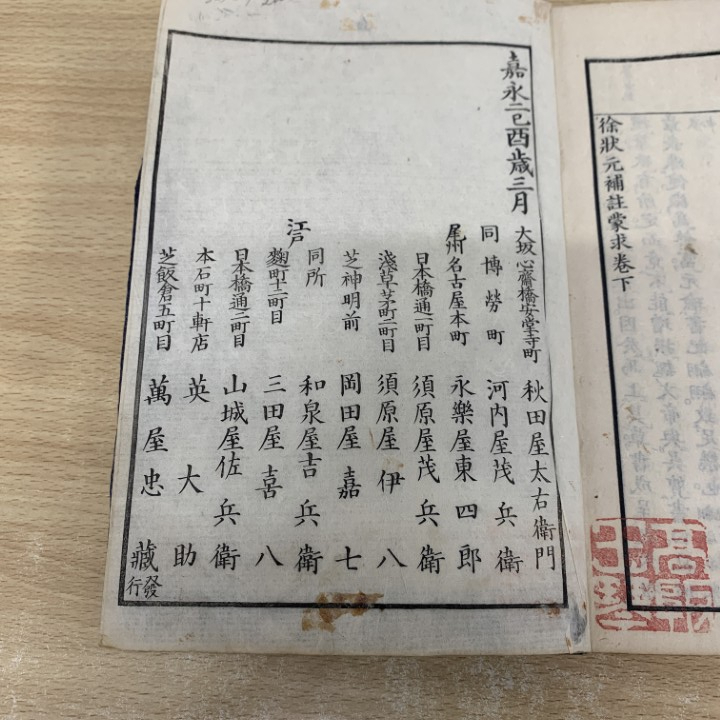 徐狀元補註蒙求卷下
嘉永二己酉歲三月
大坂心齋橋安堂寺町 秋田屋太右衛門
同博勞町 河内屋茂兵衛
尾州名古屋本町 永樂屋東四郎
日本橋通一町目 須原屋茂兵衛
淺草茅町二町目 須原屋伊八
芝神明前 岡田屋嘉七
同所 和泉屋吉兵衛
江戸
麴町十二町目 三田屋喜八
日本橋通二町目 山城屋佐兵衛
本石町十軒店 英大助
芝飯倉五町目 萬屋忠藏
發行